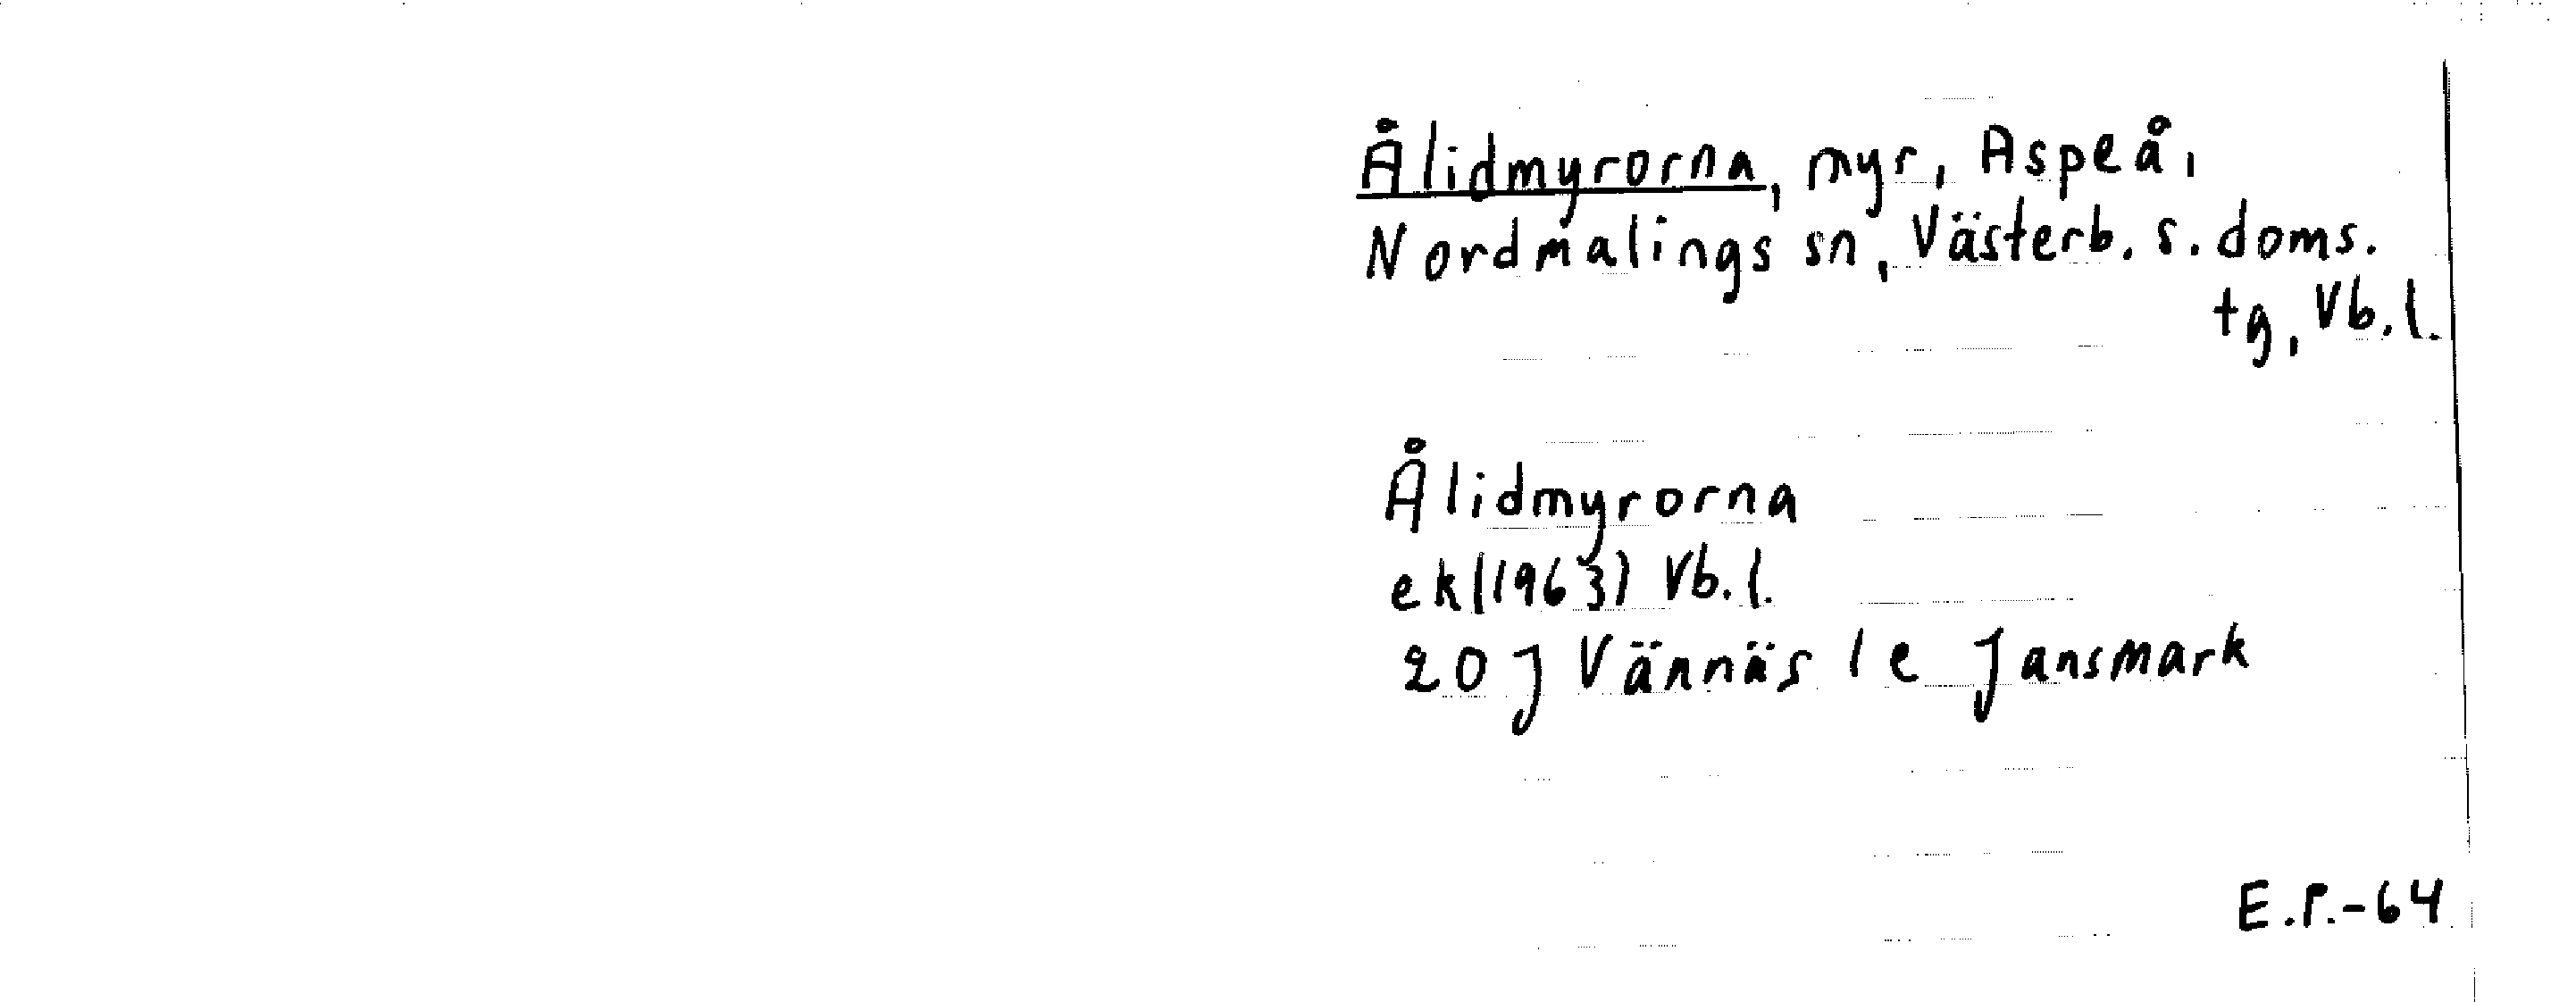 Ålidmyrorna, myr, Aspeå,
Nordmalings sn, Västerb. s. doms.
tg, Vb. l.
Ålidmyrorna
ek (1963) Vb. l.
20 J Vännäs 1 e Jansmark
E.P.-64